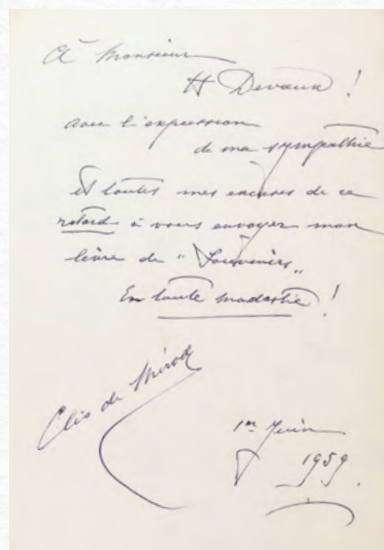 À Monsieur
H Devaux !
avec l'expression
de ma sympathie
Et toutes mes excuses de ce
retard à vous envoyer mon
livre de "Souvenirs"
En toute modestie !
Cléo de Mérode
1er Juin
1959.